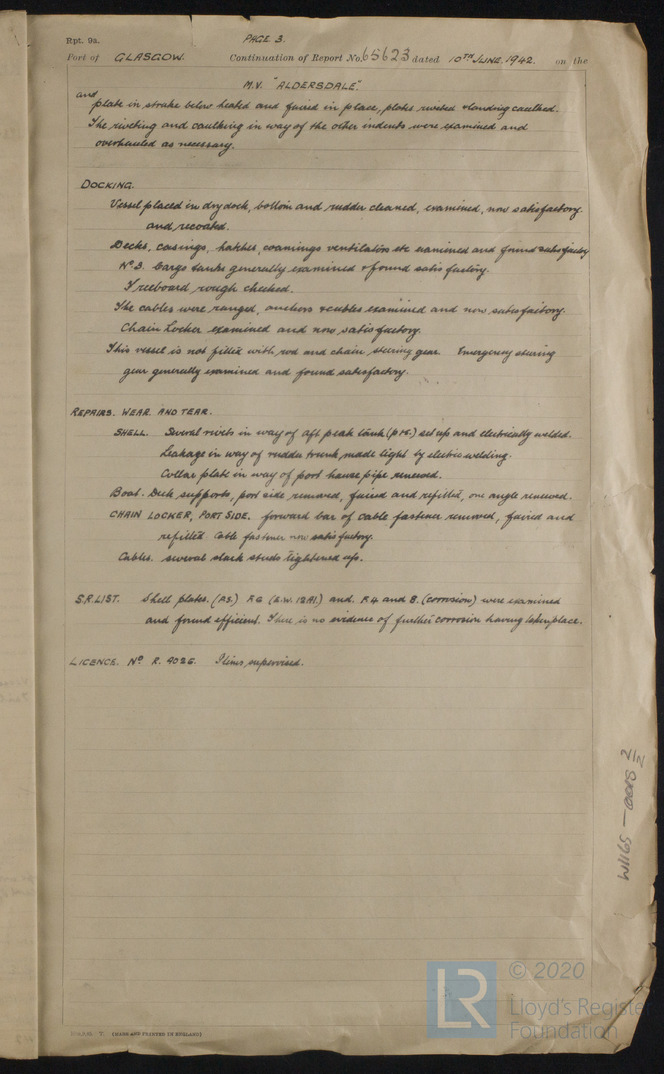 Rpt. 9a.
PAGE 3.
Port of GLASGOW. Continuation of Report No. 65623 dated 10TH JUNE. 1942. on the
M.V. "ALDERSDALE".
and
plate in strake below heated and faired in place, plates riveted & landing caulked.
The riveting and caulking in way of the other indents were examined and
overhauled as necessary.
DOCKING.
Vessel placed in dry dock, bottom and rudder cleaned, examined, now satisfactory
and recoated.
Decks, casings, hatches, coamings ventilators etc examined and found satisfactory
No 3. Cargo tanks generally examined & found satisfactory.
Freeboard rough checked.
The cables were ranged, anchors & cables examined and now satisfactory.
Chain Locker examined and now satisfactory.
This vessel is not fitted with rod and chain steering gear. Emergency steering
gear generally examined and found satisfactory.
REPAIRS. WEAR. AND TEAR.
SHELL. Several rivets in way of aft peak tank (P&S.) set up and electrically welded.
Leakage in way of rudder trunk made tight by electric welding.
Collar plate in way of port hawse pipe renewed.
Boat. Deck supports, port side removed, faired and refitted, one angle renewed.
CHAIN LOCKER, PORT SIDE. forward bar of cable fastener removed, faired and
refitted cable fastener now satisfactory.
Cables. several slack studs tightened up.
S.R. LIST. Shell plates. (P.S.) F.6 (E.W. 12A1.) and. F.4 and 8. (corrosion) were examined
and found efficient. There is no evidence of further corrosion having taken place.
LICENCE. No R. 4026. Items supervised.
W1165 - 0205 2/2
T. (MADE AND PRINTED IN ENGLAND)
LR
© 2020
Lloyd's Register
Foundation